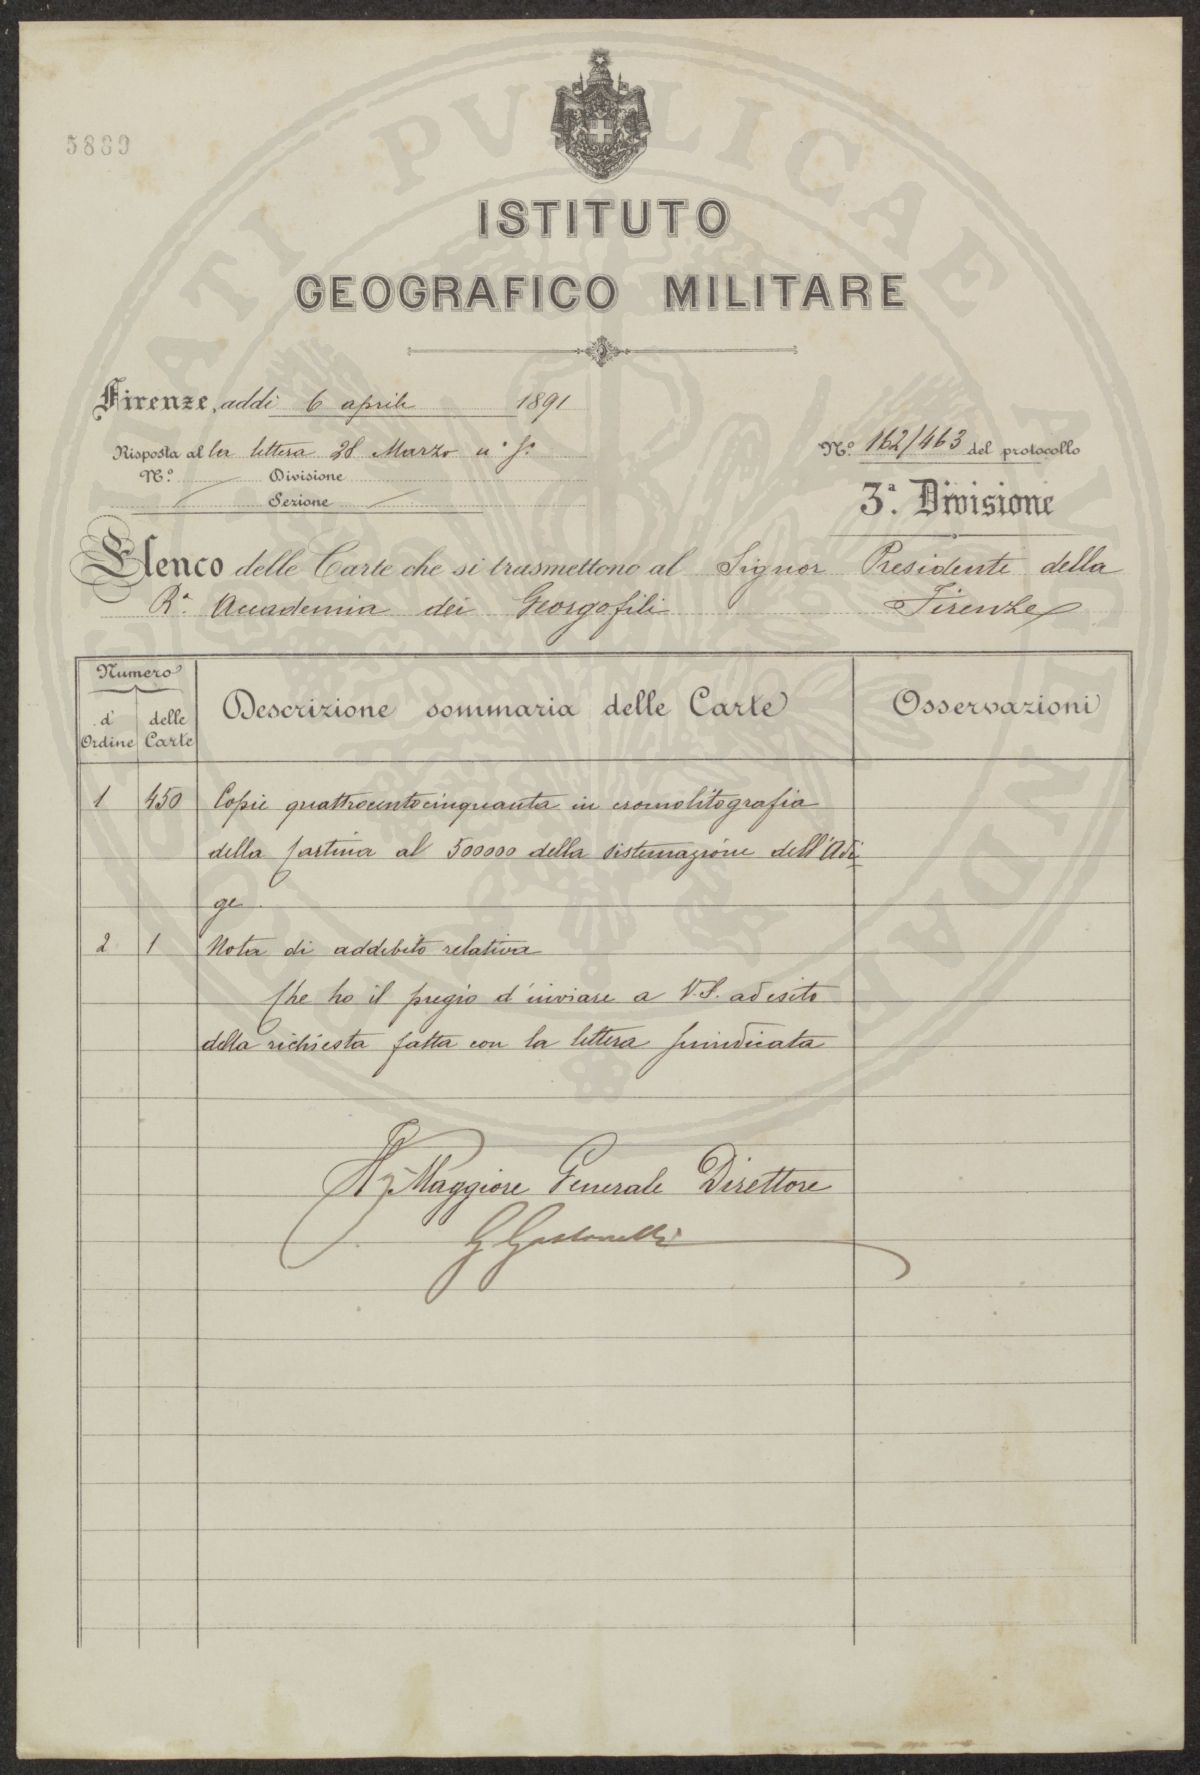 5889
ISTITUTO
GEOGRAFICO MILITARE
Firenze, addì 6 aprile 1891
Risposta alla lettera 28 Marzo u.° s.°
N.° Divisione
Sezione
N.° 162/463 del protocollo
3.ª Divisione
Elenco delle Carte che si trasmettono al Signor Presidente della
R.ª Accademia dei Georgofili Firenze
Numero
d'Ordine
delle Carte
Descrizione sommaria delle Carte
Osservazioni
1 450 Copie quattrocentocinquanta in cromolitografia
della cartina al 500000 della sistemazione dell'Adi
ge.
2 1 Nota di addebito relativa
Che ho il pregio d'inviare a V.S. ad esito
della richiesta fatta con la lettera suindicata
Il Maggiore Generale Direttore